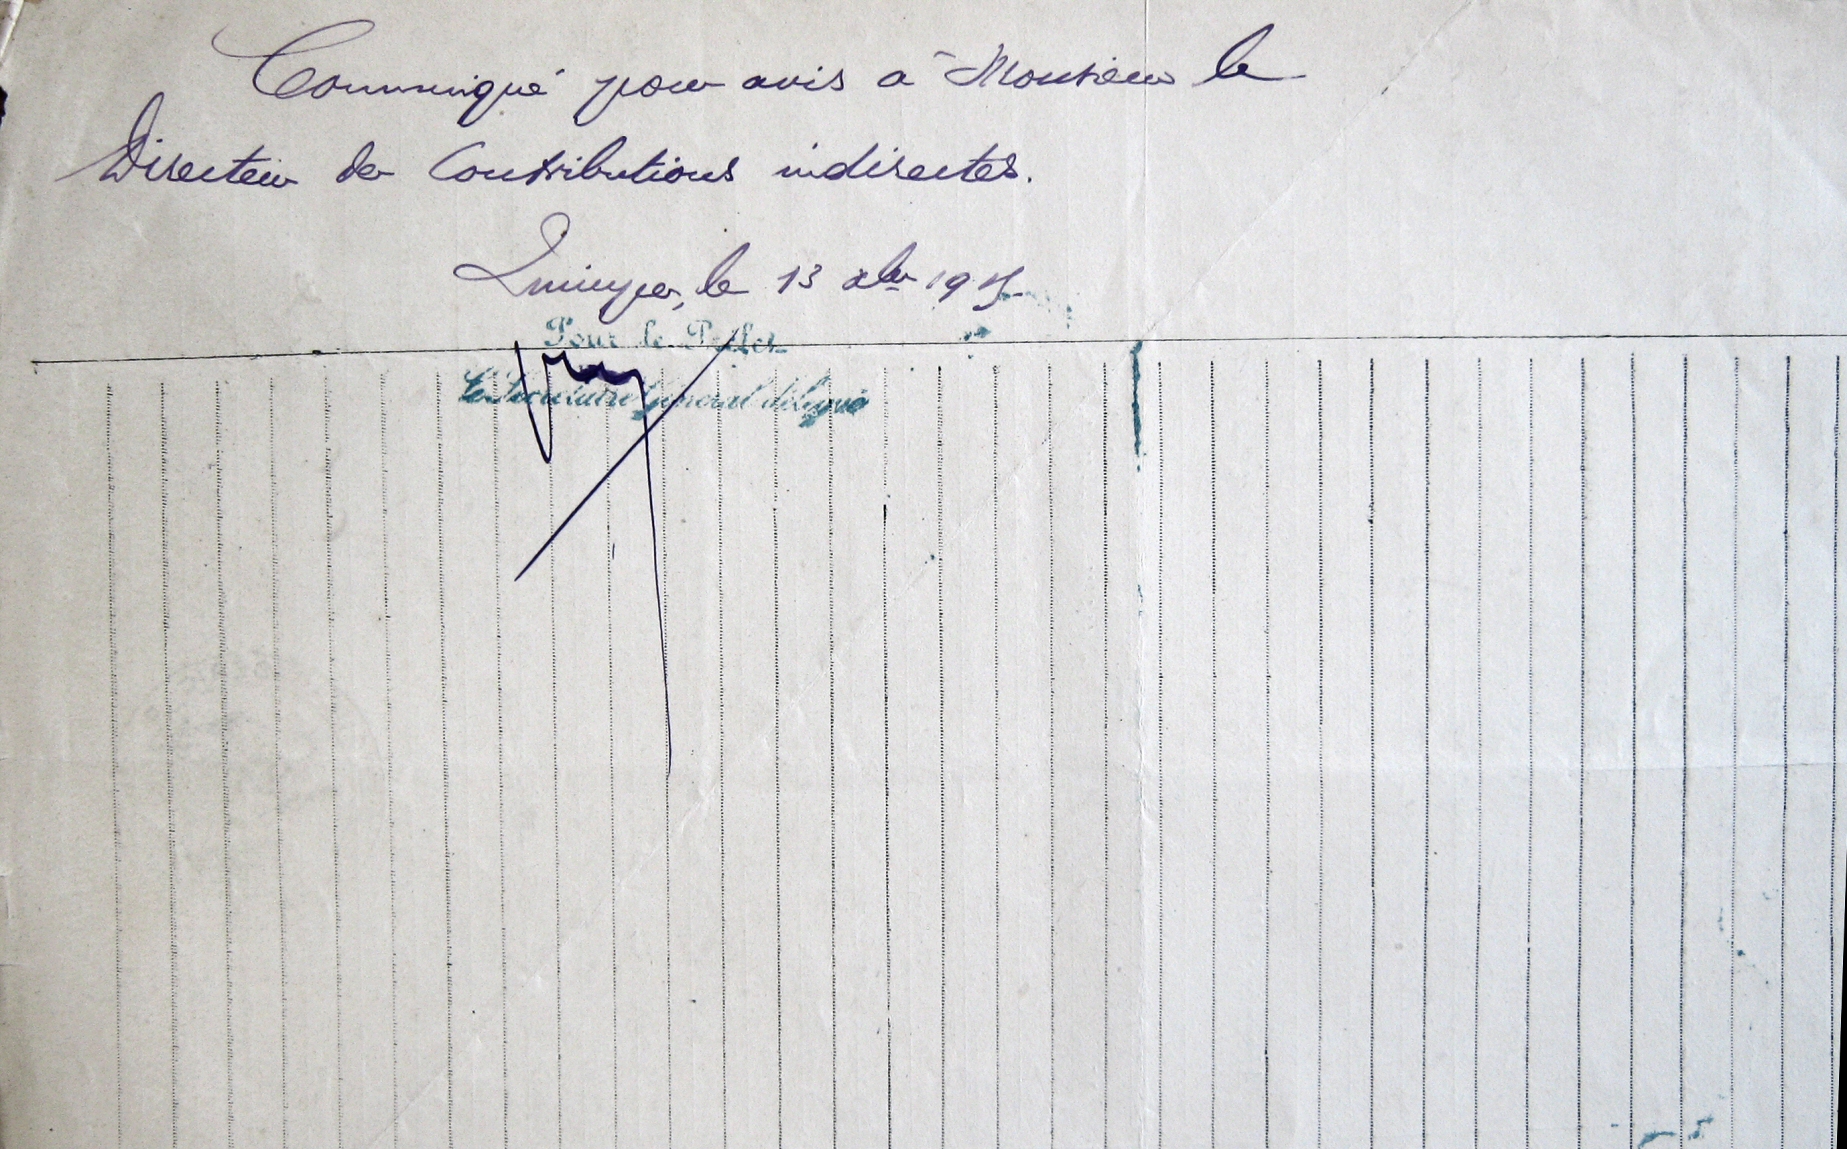 Communiqué pour avis à Monsieur le
Directeur des Contributions indirectes.
Quimper, le 13 xbre 1915
Pour le Préfet
Le Secrétaire Général délégué